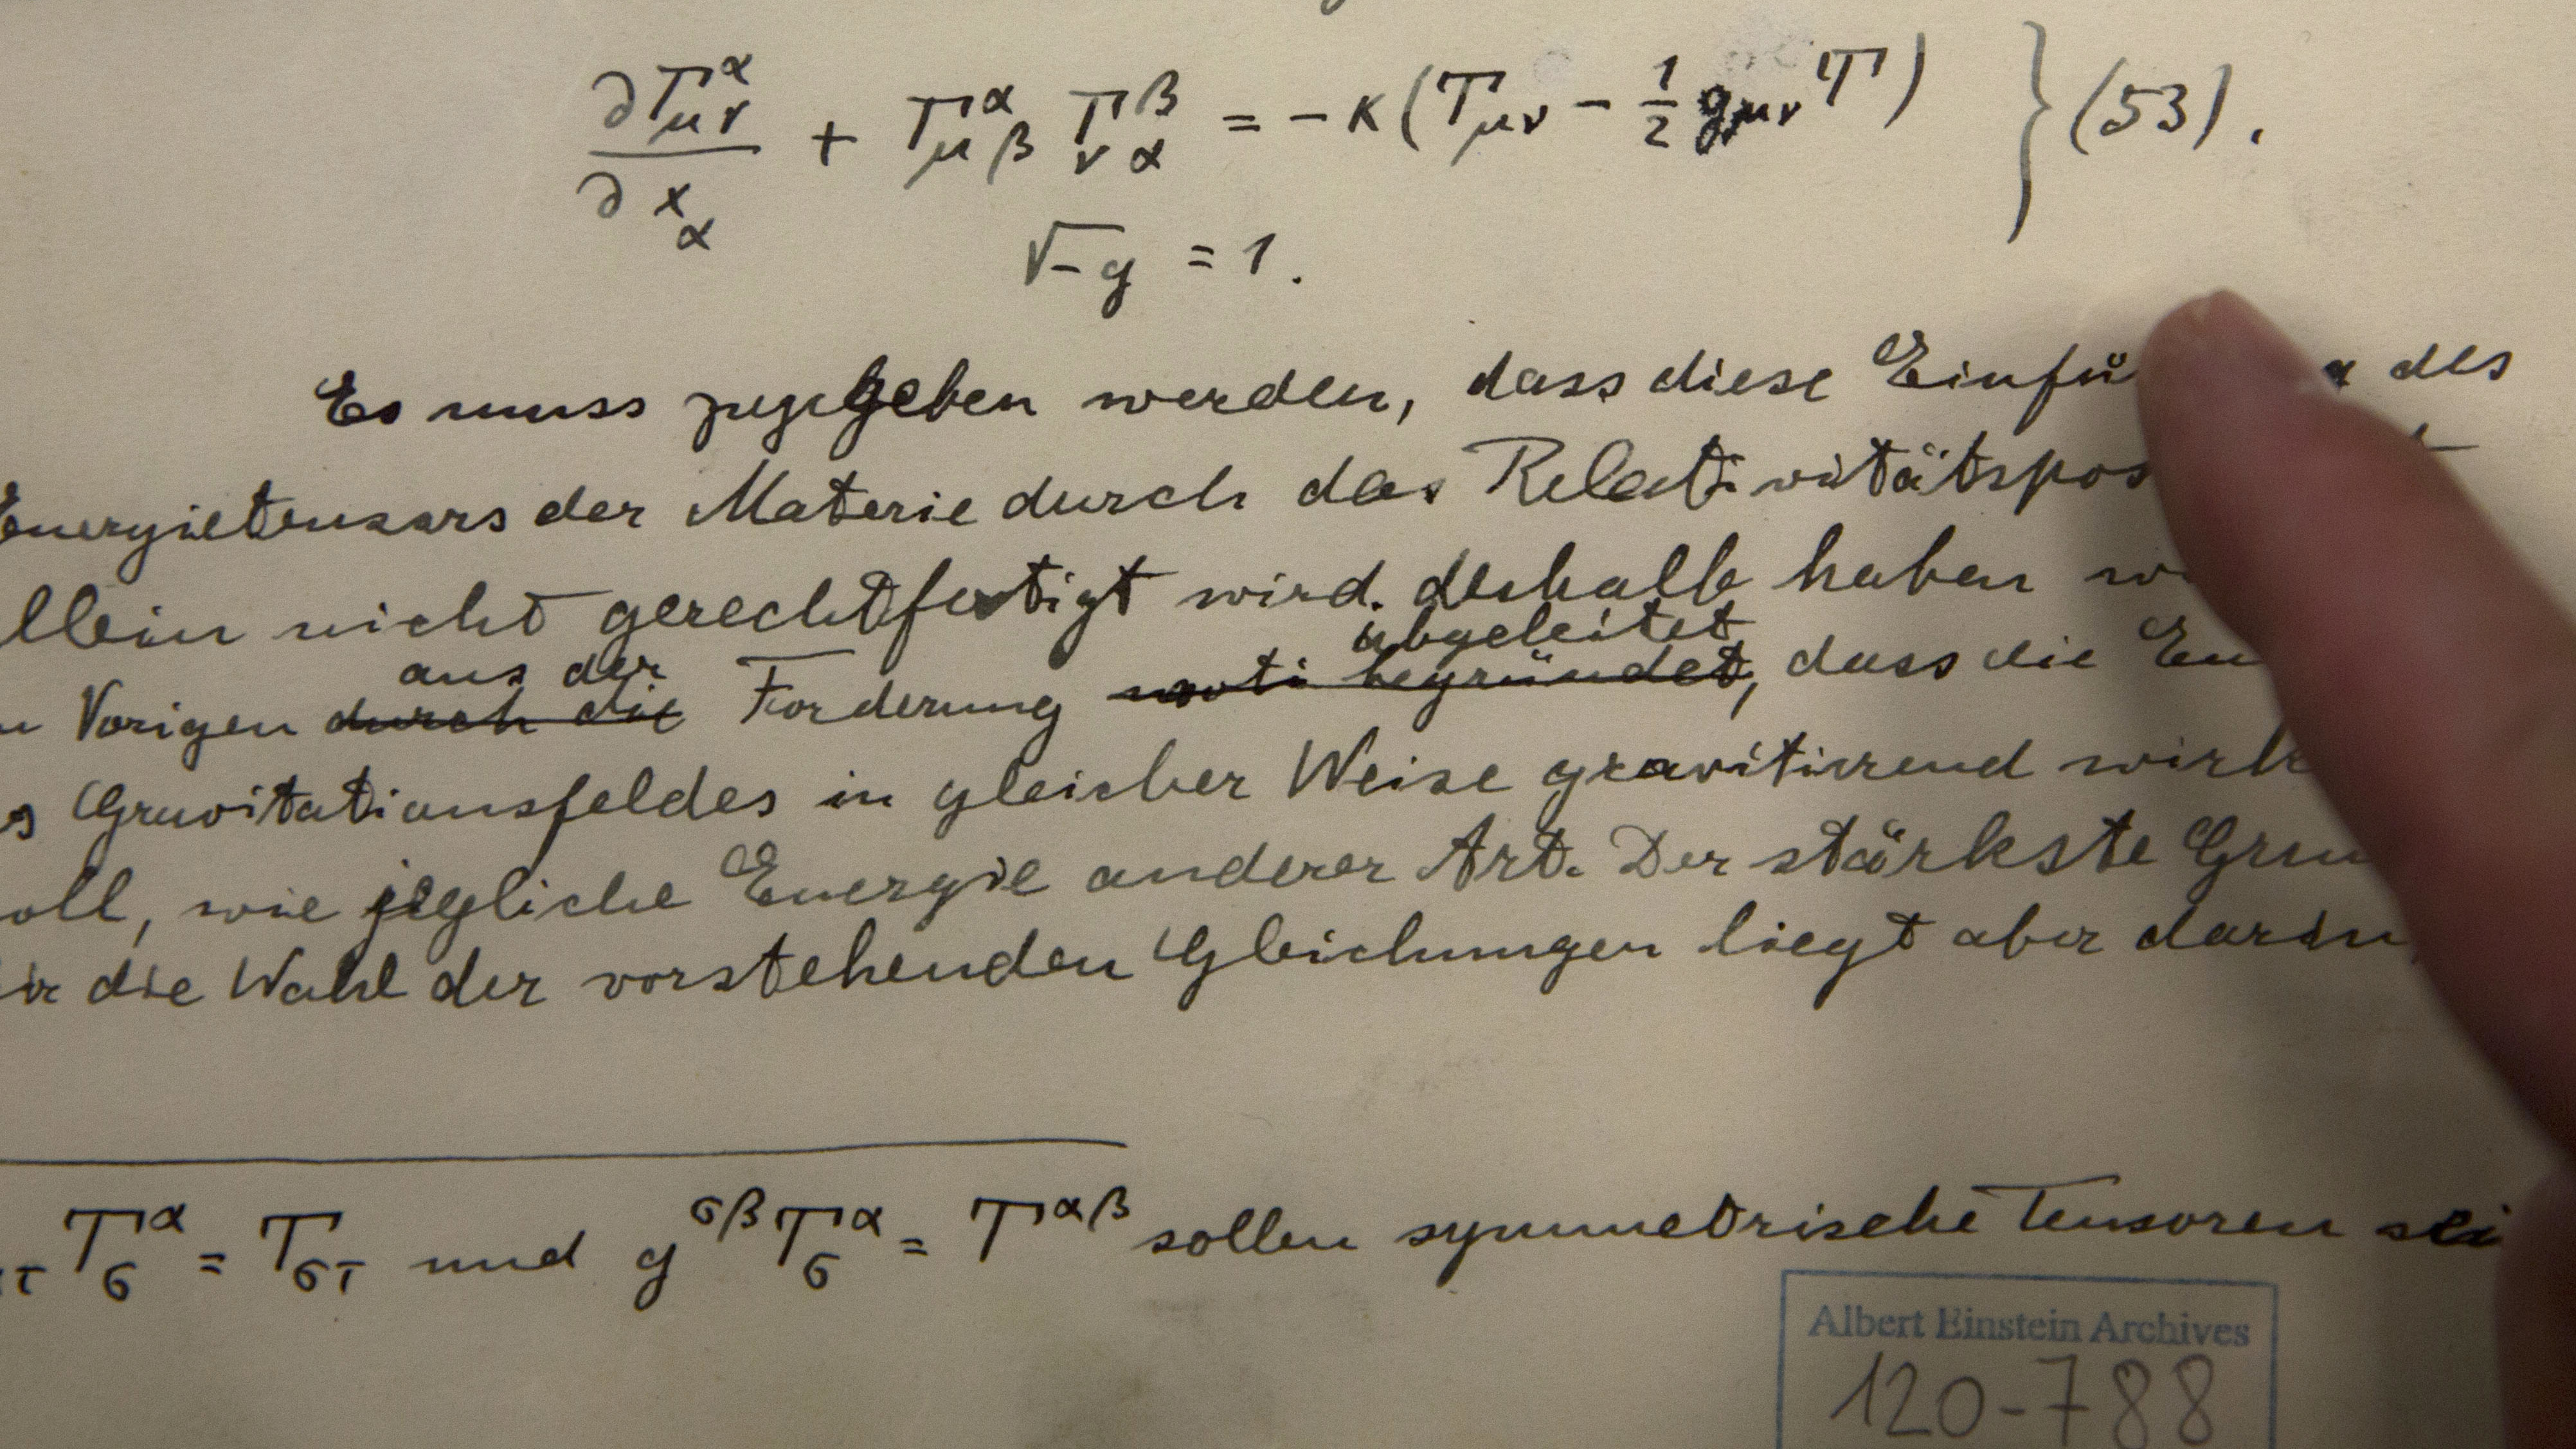 ∂Γ^α_μν / ∂x_α + Γ^α_μβ Γ^β_να = −κ(T_μν − 1/2 g_μν T) } (53).
√−g = 1.
Es muss zugegeben werden, dass diese Einfü des
Energietensors der Materie durch das Relativitätspos
llein nicht gerechtfertigt wird. deshalb haben
abgeleitet,
aus der
Vorigen durch die Forderung moti begründet, dass die En
s Gravitationsfeldes in gleicher Weise gravitierend wirk
oll, wie jegliche Energie anderer Art. Der stärkste Grun
ür die Wahl der vorstehenden Gleichungen liegt aber darin,
T^α_σ = T_στ und g^σβ T^α_σ = T^αβ sollen symmetrische Tensoren sei
Albert Einstein Archives
120-788